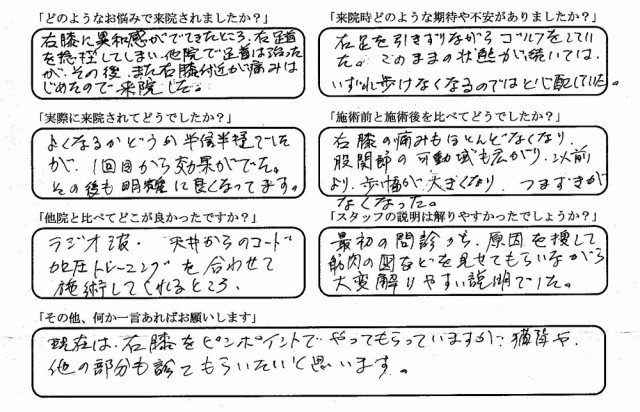 「どのようなお悩みで来院されましたか？」
右膝に異和感がでてきたところ、右足首
を捻挫してしまい、他院で足首は治った
が、その後、また右膝付近が痛みは
じめたので来院した。
「来院時どのような期待や不安がありましたか？」
右足を引きずりながらゴルフをしてい
た。このままの状態が続いては、
いずれ歩けなくなるのではと心配していた。
「実際に来院されてどうでしたか？」
よくなるかどうか半信半疑でした
が、1回目から効果がでた。
その後も明確に良くなってます。
「施術前と施術後を比べてどうでしたか？」
右膝の痛みもほとんどなくなり、
股関節の可動域も広がり、以前
より、歩幅が大きくなり、つまずきが
なくなった。
「他院と比べてどこが良かったですか？」
ラジオ波・天井からのコード
加圧トレーニングを合わせて
施術してくれるところ。
「スタッフの説明は解りやすかったでしょうか？」
最初の問診から、原因を捜して
筋肉の図などを見せてもらいながら
大変解りやすい説明でした。
「その他、何か一言あればお願いします」
現在は、右膝をピンポイントでやってもらっていますが、猫背や、
他の部分も診てもらいたいと思います。